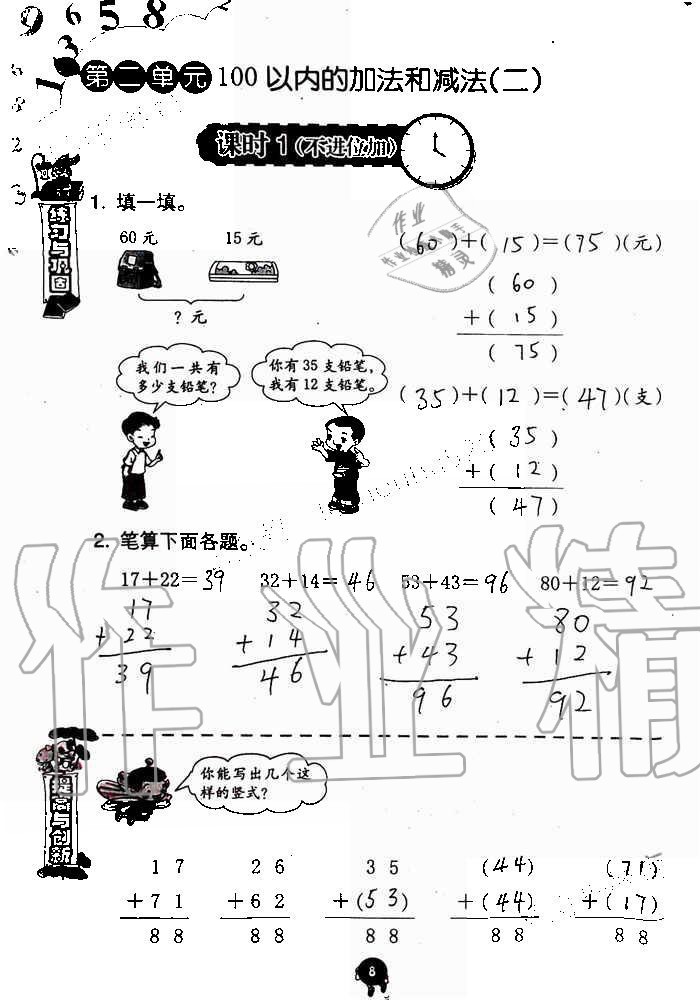 9 6 5 8
3
1
6
8
2
3
第二单元 100 以内的加法和减法(二)
课时 1 (不进位加)
练习与巩固
1. 填一填。
60 元 15 元
? 元
(60)+(15)=(75)(元)
(60)
+(15)
(75)
我们一共有
多少支铅笔?
你有 35 支铅笔,
我有 12 支铅笔。
(35)+(12)=(47)(支)
(35)
+(12)
(47)
2. 笔算下面各题。
17+22=39 32+14=46 53+43=96 80+12=92
17 32 53 80
+22 +14 +43 +12
39 46 96 92
提高与创新
你能写出几个这
样的竖式?
17 26 35 (44) (71)
+71 +62 +(53) +(44) +(17)
88 88 88 88 88
8
作业精
作业
精灵